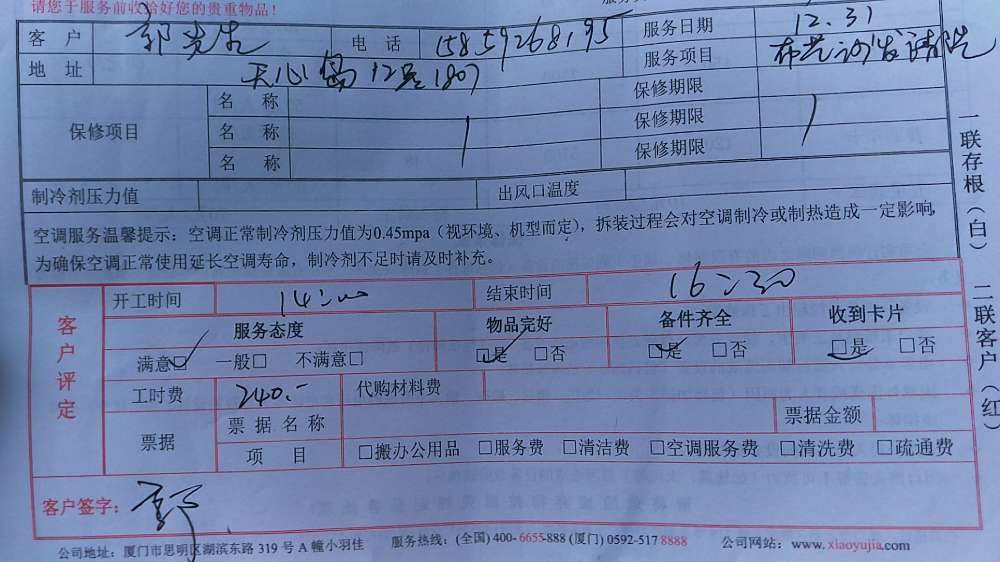 请您于服务前收拾好您的贵重物品！
客 户 郭先生 电 话 15859268195 服务日期 12.31
地 址 天心岛12号1807 服务项目 布艺沙发清洗
保修项目 名 称 保修期限
名 称 保修期限
名 称 保修期限
制冷剂压力值 出风口温度
空调服务温馨提示：空调正常制冷剂压力值为0.45mpa（视环境、机型而定），拆装过程会对空调制冷或制热造成一定影响，
为确保空调正常使用延长空调寿命，制冷剂不足时请及时补充。
客户评定
开工时间 14:00 结束时间 16:30
服务态度 物品完好 备件齐全 收到卡片
满意☑ 一般□ 不满意□ ☑是 □否 ☑是 □否 ☑是 □否
工时费 240.- 代购材料费
票据 票 据 名 称 票据金额
项 目 □搬办公用品 □服务费 □清洁费 □空调服务费 □清洗费 □疏通费
客户签字： 郭
公司地址：厦门市思明区湖滨东路 319 号 A 幢小羽佳 服务热线：(全国) 400-6655-888 (厦门) 0592-517 8888 公司网站：www.xiaoyujia.com
一联存根（白） 二联客户（红）